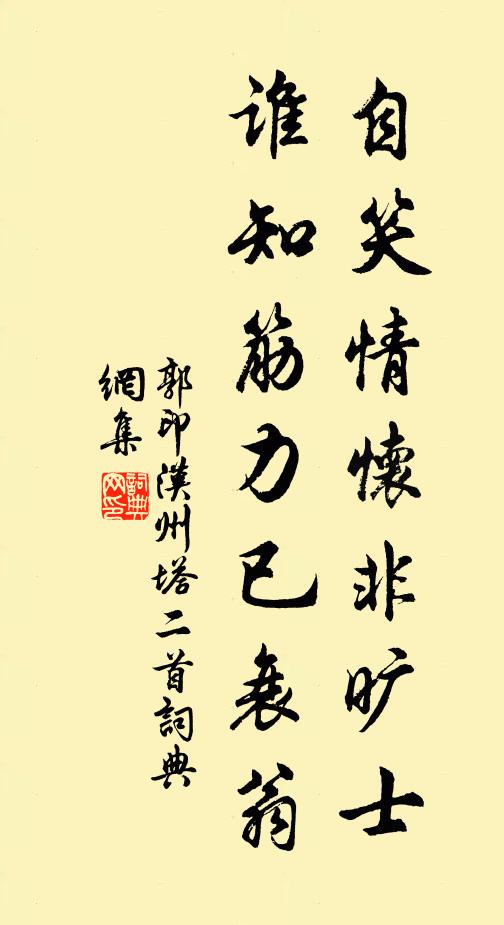 自笑情懷非旷士
谁知筋力已衰翁
郭印漢州塔二首詞典
網集
詞典網印